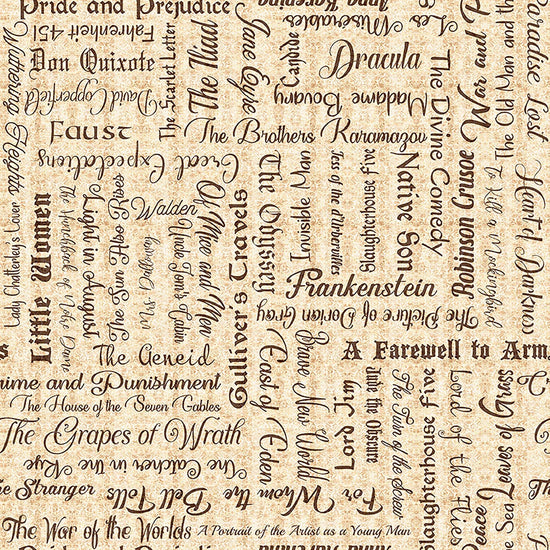 Pride and Prejudice
Anna Karenina
Les Miserables
Fahrenheit 451
The Scarlet Letter
The Iliad
Jane Eyre
Candide
Dracula
The Divine Comedy
War and P
The Old Man and the
Paradise Lost
Wuthering Heights
Don Quixote
David Copperfield
Madame Bovary
Faust
The Brothers Karamazov
Great Expectations
Lady Chatterley's Lover
Little Women
The Hunchback of Notre Dame
Light in August
The Sun Also Rises
Walden
Mrs Dalloway
Uncle Tom's Cabin
Of Mice and Men
Gulliver's Travels
The Odyssey
Invisible Man
Tess of the d'Urbervilles
Slaughterhouse Five
Native Son
Robinson Crusoe
To Kill a Mockingbird
Heart of Darkness
Frankenstein
The Picture of Dorian Gray
s
The Aeneid
A Farewell to Arm
rime and Punishment
The House of the Seven Gables
East of Eden
Brave New World
Lord Jim
The Turn of the Screw
Slaughterhouse Five
Lord of the Flies
Leaves of Grass
The Grapes of Wrath
The Catcher in the Rye
he Stranger
For Whom the Bell Tolls
Peace
e Sea
The War of the Worlds
A Portrait of the Artist as a Young Man